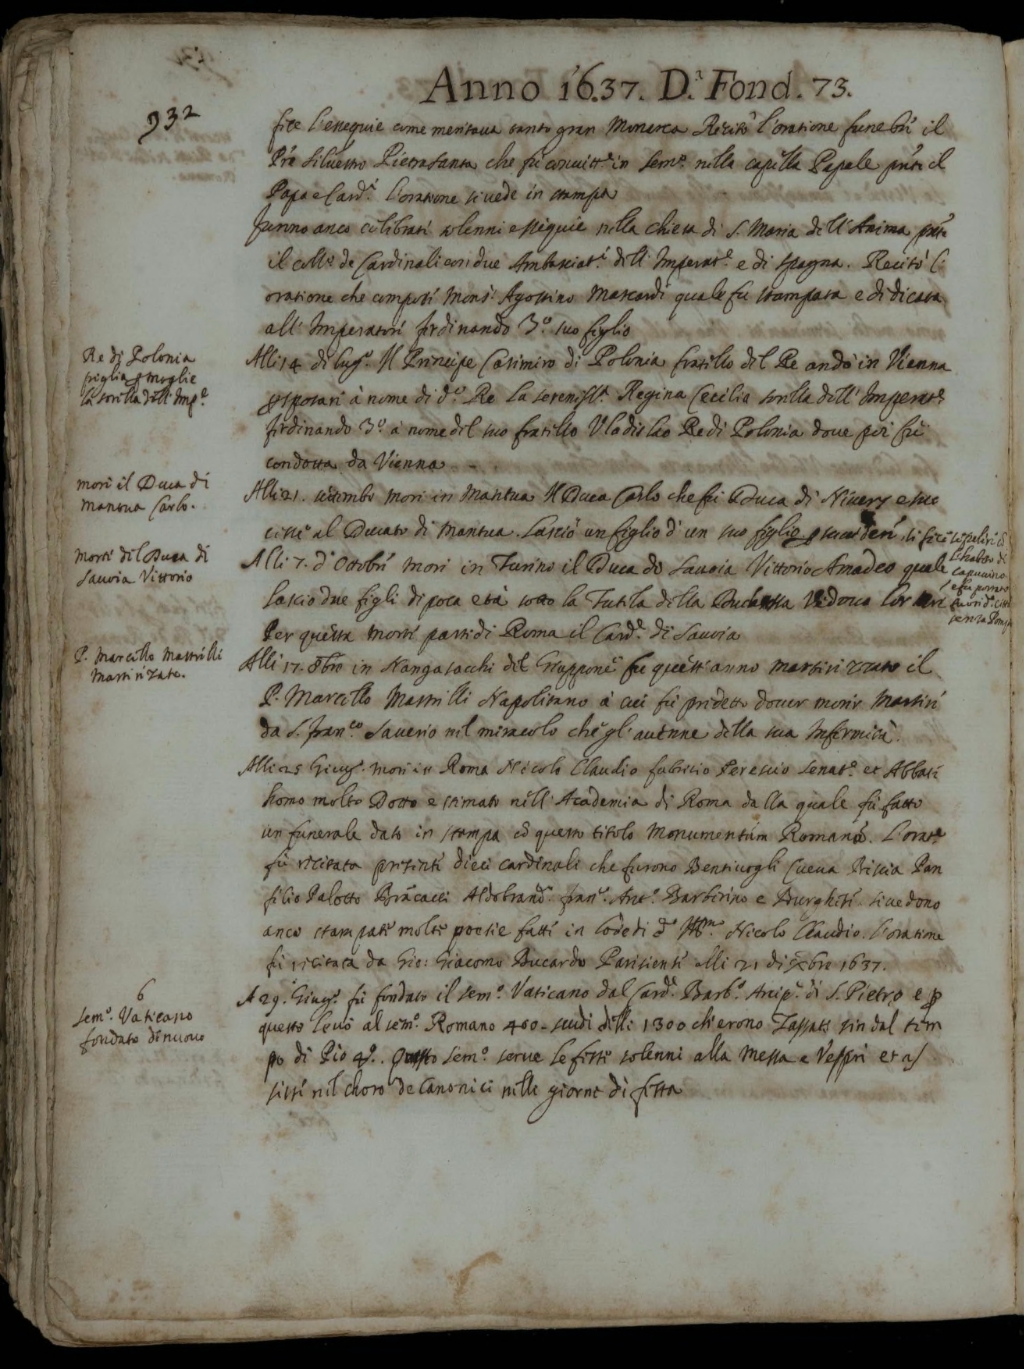 932
Anno 1637. D.ª Fond. 73.
fece l'essequie come meritava tanto gran Monarca Recitò l'oratione funebri il
Pre Silvestro Pietrasanta che fu convitt.e in sem.º nella capella Papale pnte il
Papa e Card.i l'oratione si vede in stampa
furono anco celibrati solenni essequie nella chiesa di S. Maria dell'Anima pnte
il coll.º de Cardinali con due Ambasciat.i dell'Imperat.e e di Spagna. Recitò l'
oratione che composi Mons.r Agostino Mascardi quale fu stampata e dedicata
all'Imperatori ferdinando 3.º suo figlio
Re di Polonia
piglia p moglie
la sorella dell'Imp.e
Alli 14 di Lug.º Il Principe Casimiro di Polonia fratello del Re andò in Vienna
p sposari à nome di d.º Re la sereniss.a Regina Cecilia sorella dell'Imperat.e
ferdinando 3.º à nome del suo fratello Vladislao Re di Polonia dove poi fu
condotta da Vienna
mori il Duca di
Mantua Carlo.
Alli 21. settembre mori in Mantua Il Duca Carlo che fu Duca di Nivers e suc
cesse al Ducato di Mantua lasciò un figlio d'un suo figlio
Morte del Duca di
Savoia Vittorio
Alli 7. d'Ottobri mori in Turino il Duca do Savoia Vittorio Amadeo quale
lascio due figli di poca età sotto la Tutela della Duchessa Vedova
si fece sepelire
l'habito di
capuccino
Per questa morte parti di Roma il Card.e di Savoia
P. Marcello Mastrilli
Martirizato.
Alli 17. 8bre in Nangasacchi del Giappone fu quest'anno martirizzato il
P. Marcello Mastrilli Napolitano à cui fu predetto dover morir Martire
da S. Fran.co Saverio nel miracolo che gl'avenne della sua Infermità.
Alli 25 Giug.º mori in Roma Nicolo Claudio fabritio Perescio Senat.e et Abbate
homo molto Dotto e stimato nell'Academia di Roma dalla quale fu fatto
un funerale dato in stampa cō questo titolo Monumentum Romanū. L'orat.e
fu recitata presenti dieci cardinali che furono Bentivogli Cueva Biscia Pan
filio Palotto Brācacci Aldobrand.º fran.º Ant.º Barberino e Burghesi si vedono
anco stampate molte poesie fatti in lode di d.º Nicolo Claudio. l'oratione
fu recitata da Gio: Giacomo Bucardo Parisienti alli 21 di Xbre 1637.
6
Sem.º Vaticano
fondato di nuovo
A 29. Giug.º fu fondato il sem.º Vaticano dal Card. Barb.º Arcip.e di S. Pietro e p
questo levò al sem.º Romano 400 scudi delli 1300 ch'erono Tassati sin dal tem
po di Pio 4.º. Questo sem.º serve le feste solenni alla Messa e Vespri et as
siste nel choro de Canonici nelle giorne di festa